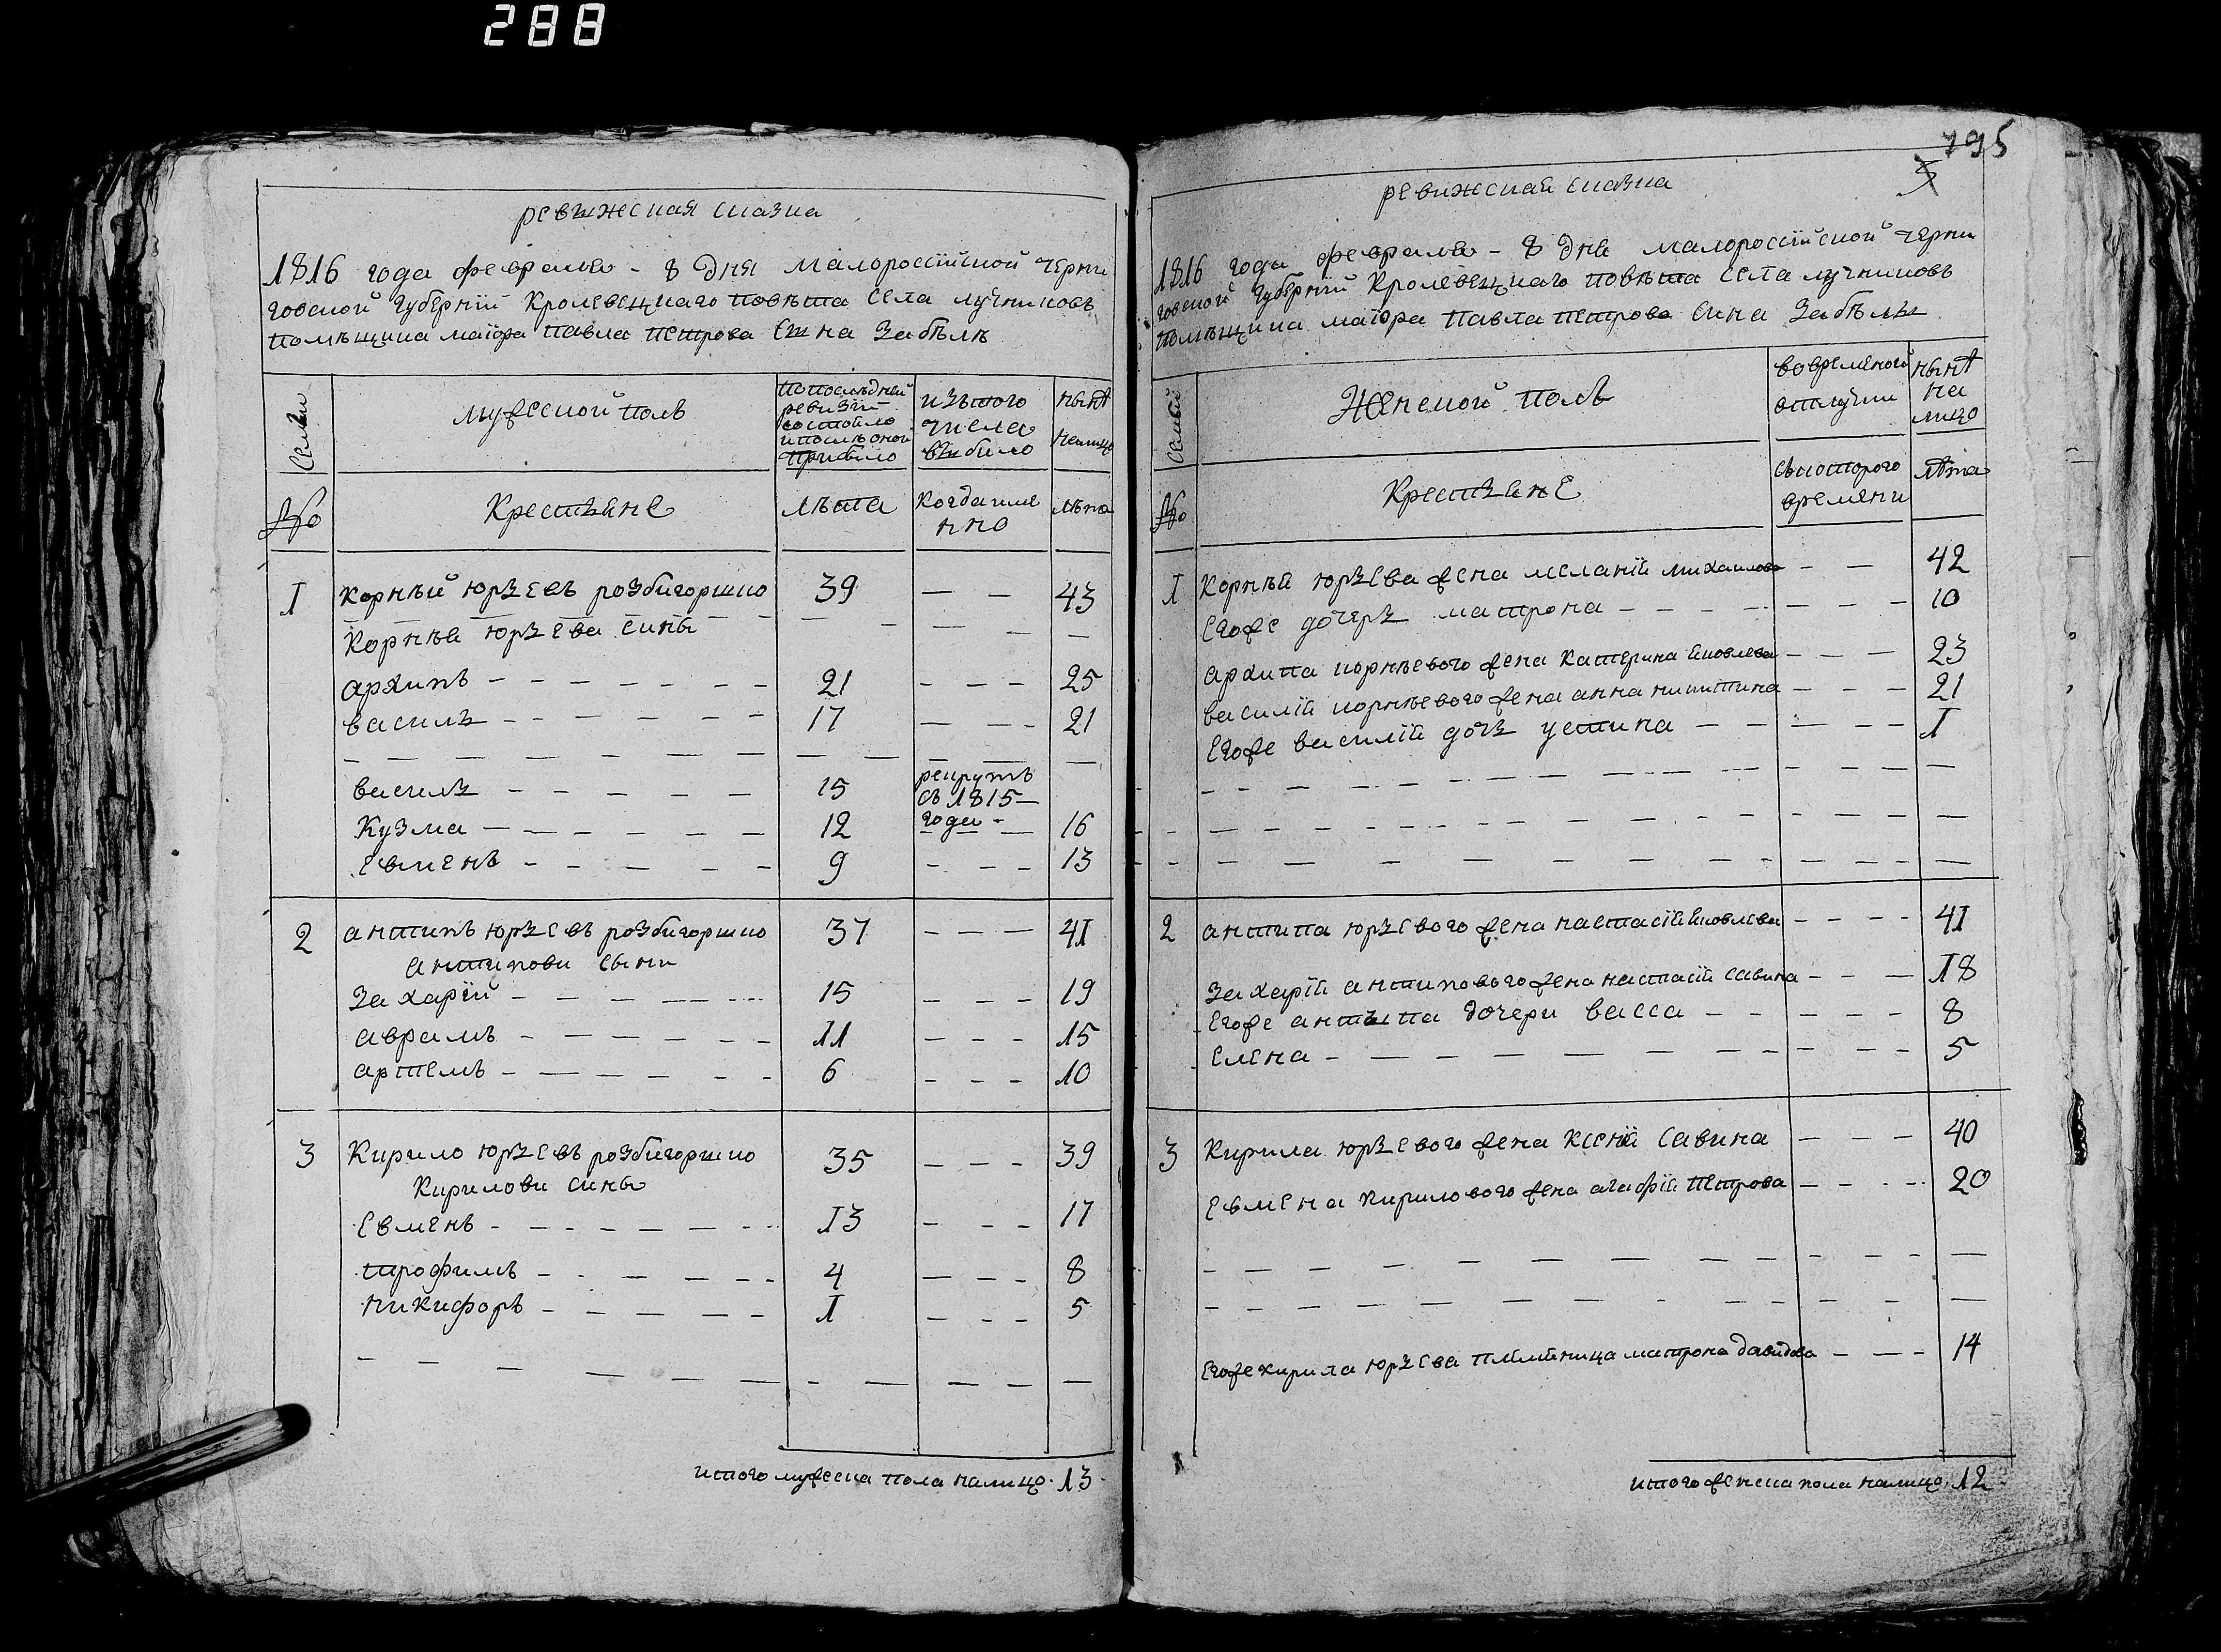 288
ревижеская сказка
1816 года февраля - 8 дня малоросїйской черни
говской губернїй Кролевецкаго повѣта села лучниковъ
помѣщика маїора павла петрова сина Забѣлѣ
Семьи
мужеской полъ
попослѣдней
ревизїй
состояло
ипослѣ оной
прибило
изътого
числа
вибило
нынѣ
налицо
№
Крестьяне
лѣта
когда име
нно
лѣта
1 Корнѣй юрьевъ розбигоршко 39 — — 43
Корнѣя юрьева сины
архипъ 21 25
василь 17 21
василь 15 рекрутъ
съ 1815
года
Кузма 12 16
Евменъ 9 13
2 антипъ юрьевъ розбигоршко 37 41
антипови сыни
Захарїй 15 19
аврамъ 11 15
артемъ 6 10
3 Кирило юрьевъ розбигоршко 35 39
Кирилови сины
Евменъ 13 17
трофимъ 4 8
никифоръ 1 5
итого мужеска пола налицо 13
795
5
ревижеская сказка
1816 года февраля - 8 дня малоросїйской черни
говской губернїй Кролевецкаго повѣта села лучниковъ
помѣщика маїора павла петрова сина Забѣлы
Семьй
Женской полъ
вовременой
отлучки
нынѣ
на
лицо
№
Крестьяне
съкоторого
времени
лѣта
1 Корнѣя юрьева жена меланїя михаилова — — 42
Егоже дочерь матрона 10
архипа корнѣевого жена Катерина яковлева 23
василїй корнѣевого жена анна никитина 21
Егоже василїй дочь устина 1
2 антипа юрьевого жена настасїя яковлева 41
Захарїй антипового жена настасїя савина 18
Егоже антыпа дочери васса 8
Елена 5
3 Кирила юрьевого жена Ксенїя Савина 40
Евмена кирилового жена агафїя петрова 20
Егоже кирила юрьева племяница матрона давидова 14
итого женска пола налицо 12